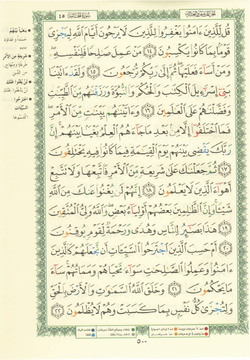 سورة الجاثية ٤٥
قُل لِّلَّذِينَ ءَامَنُواْ يَغۡفِرُواْ لِلَّذِينَ لَا يَرۡجُونَ أَيَّامَ ٱللَّهِ لِيَجۡزِيَ
قَوۡمَۢا بِمَا كَانُواْ يَكۡسِبُونَ ١٤ مَنۡ عَمِلَ صَٰلِحٗا فَلِنَفۡسِهِۦۖ
وَمَنۡ أَسَآءَ فَعَلَيۡهَاۖ ثُمَّ إِلَىٰ رَبِّكُمۡ تُرۡجَعُونَ ١٥ وَلَقَدۡ ءَاتَيۡنَا
بَنِيٓ إِسۡرَٰٓءِيلَ ٱلۡكِتَٰبَ وَٱلۡحُكۡمَ وَٱلنُّبُوَّةَ وَرَزَقۡنَٰهُم مِّنَ ٱلطَّيِّبَٰتِ
وَفَضَّلۡنَٰهُمۡ عَلَى ٱلۡعَٰلَمِينَ ١٦ وَءَاتَيۡنَٰهُم بَيِّنَٰتٖ مِّنَ ٱلۡأَمۡرِۖ
فَمَا ٱخۡتَلَفُوٓاْ إِلَّا مِنۢ بَعۡدِ مَا جَآءَهُمُ ٱلۡعِلۡمُ بَغۡيَۢا بَيۡنَهُمۡۚ إِنَّ
رَبَّكَ يَقۡضِي بَيۡنَهُمۡ يَوۡمَ ٱلۡقِيَٰمَةِ فِيمَا كَانُواْ فِيهِ يَخۡتَلِفُونَ
١٧ ثُمَّ جَعَلۡنَٰكَ عَلَىٰ شَرِيعَةٖ مِّنَ ٱلۡأَمۡرِ فَٱتَّبِعۡهَا وَلَا تَتَّبِعۡ
أَهۡوَآءَ ٱلَّذِينَ لَا يَعۡلَمُونَ ١٨ إِنَّهُمۡ لَن يُغۡنُواْ عَنكَ مِنَ ٱللَّهِ
شَيۡـٔٗاۚ وَإِنَّ ٱلظَّٰلِمِينَ بَعۡضُهُمۡ أَوۡلِيَآءُ بَعۡضٖۖ وَٱللَّهُ وَلِيُّ ٱلۡمُتَّقِينَ
١٩ هَٰذَا بَصَٰٓئِرُ لِلنَّاسِ وَهُدٗى وَرَحۡمَةٞ لِّقَوۡمٖ يُوقِنُونَ ٢٠
أَمۡ حَسِبَ ٱلَّذِينَ ٱجۡتَرَحُواْ ٱلسَّيِّـَٔاتِ أَن نَّجۡعَلَهُمۡ كَٱلَّذِينَ
ءَامَنُواْ وَعَمِلُواْ ٱلصَّٰلِحَٰتِ سَوَآءٗ مَّحۡيَاهُمۡ وَمَمَاتُهُمۡۚ سَآءَ
مَا يَحۡكُمُونَ ٢١ وَخَلَقَ ٱللَّهُ ٱلسَّمَٰوَٰتِ وَٱلۡأَرۡضَ بِٱلۡحَقِّ
وَلِتُجۡزَىٰ كُلُّ نَفۡسِۭ بِمَا كَسَبَتۡ وَهُمۡ لَا يُظۡلَمُونَ ٢٢
٥٠٠